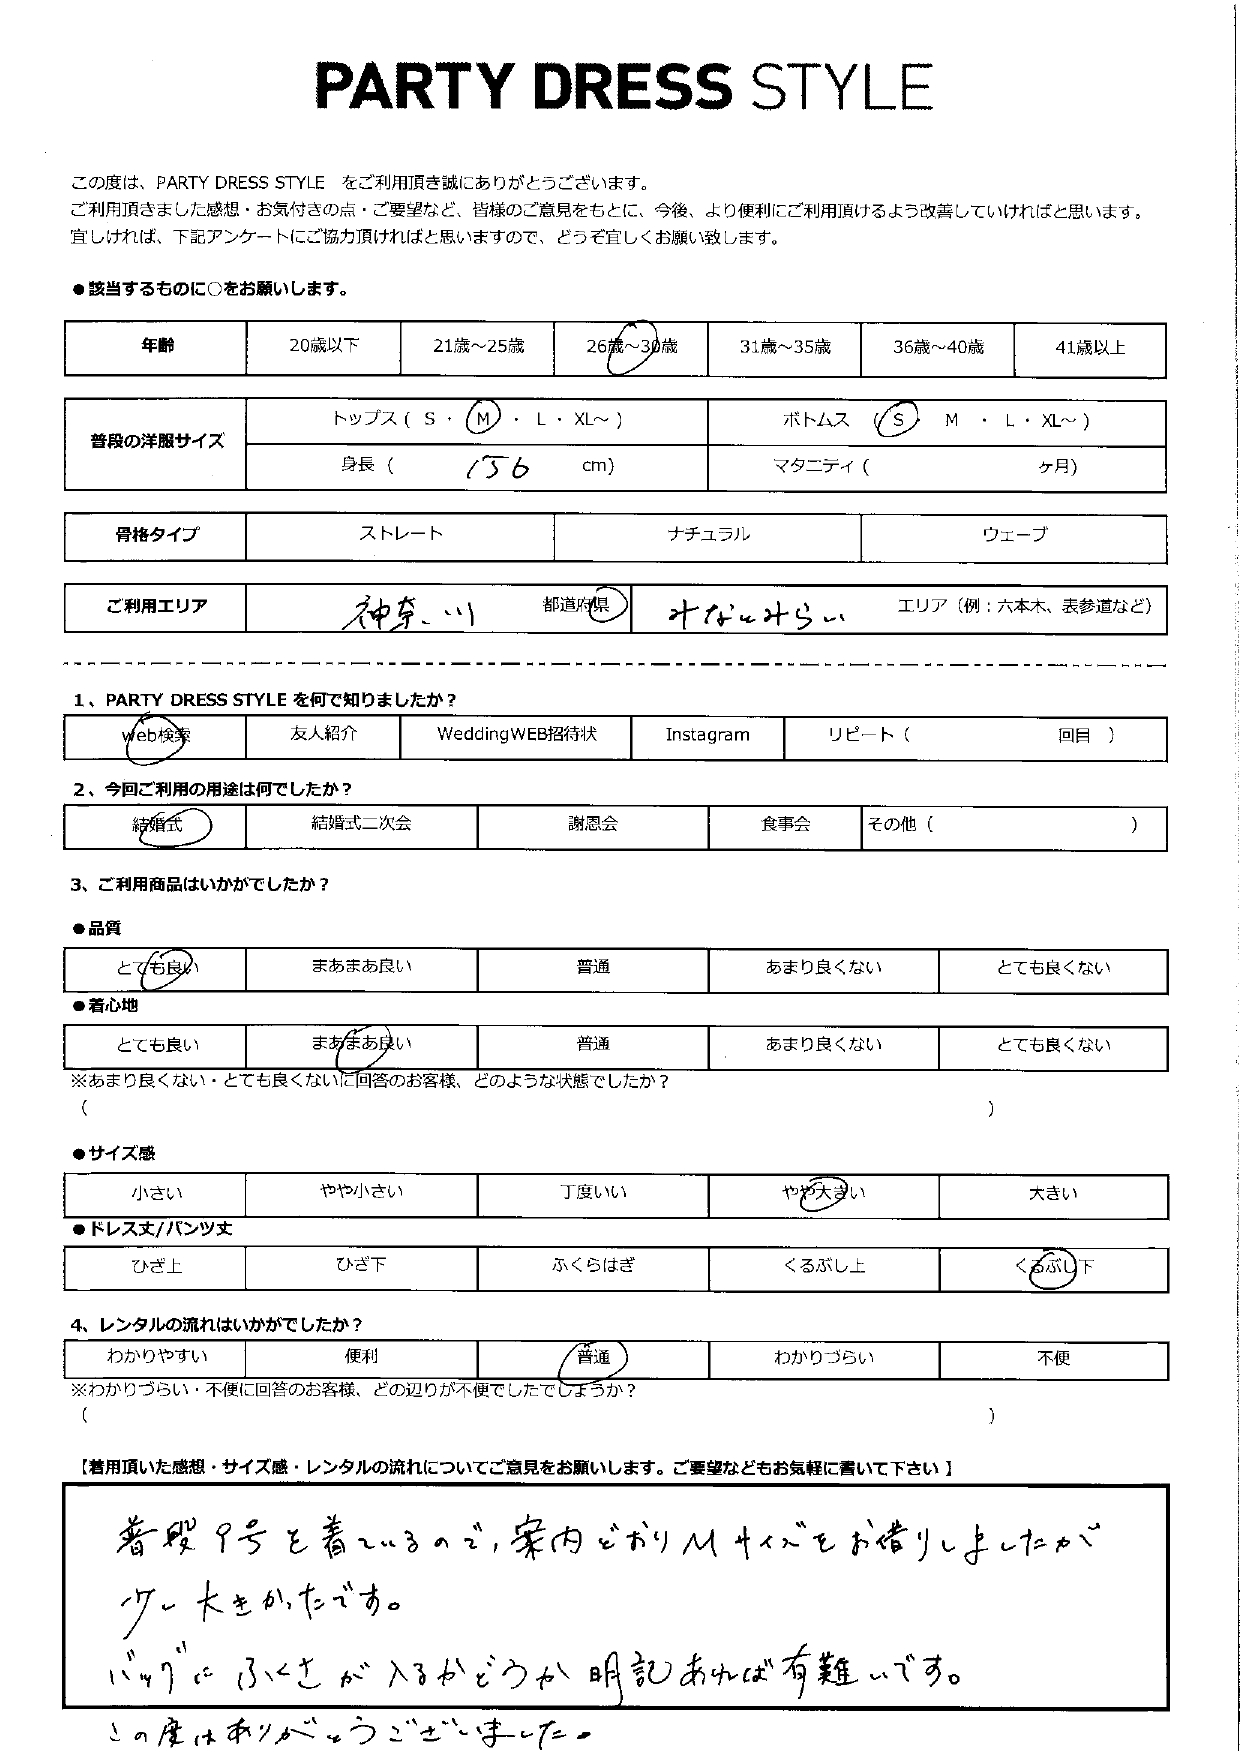 PARTY DRESS STYLE
この度は、PARTY DRESS STYLE をご利用頂き誠にありがとうございます。
ご利用頂きました感想・お気付きの点・ご要望など、皆様のご意見をもとに、今後、より便利にご利用頂けるよう改善していければと思います。
宜しければ、下記アンケートにご協力頂ければと思いますので、どうぞ宜しくお願い致します。
●該当するものに○をお願いします。
年齢 20歳以下 21歳～25歳 26歳～30歳 31歳～35歳 36歳～40歳 41歳以上
普段の洋服サイズ トップス ( S ・ M ・ L ・ XL～ ) ボトムス ( S M ・ L ・ XL～ )
身長 ( 156 cm) マタニティ ( ヶ月)
骨格タイプ ストレート ナチュラル ウェーブ
ご利用エリア 神奈川 都道府県 みなとみらい エリア（例：六本木、表参道など）
1、PARTY DRESS STYLE を何で知りましたか？
web検索 友人紹介 WeddingWEB招待状 Instagram リピート ( 回目 )
2、今回ご利用の用途は何でしたか？
結婚式 結婚式二次会 謝恩会 食事会 その他 ( )
3、ご利用商品はいかがでしたか？
●品質
とても良い まあまあ良い 普通 あまり良くない とても良くない
●着心地
とても良い まあまあ良い 普通 あまり良くない とても良くない
※あまり良くない・とても良くないに回答のお客様、どのような状態でしたか？
( )
●サイズ感
小さい やや小さい 丁度いい やや大きい 大きい
●ドレス丈/パンツ丈
ひざ上 ひざ下 ふくらはぎ くるぶし上 くるぶし下
4、レンタルの流れはいかがでしたか？
わかりやすい 便利 普通 わかりづらい 不便
※わかりづらい・不便に回答のお客様、どの辺りが不便でしたでしょうか？
( )
【着用頂いた感想・サイズ感・レンタルの流れについてご意見をお願いします。ご要望などもお気軽に書いて下さい】
普段9号を着ているので、案内どおりMサイズをお借りしましたが
少し大きかったです。
バッグにふくさが入るかどうか明記あれば有難いです。
この度はありがとうございました。